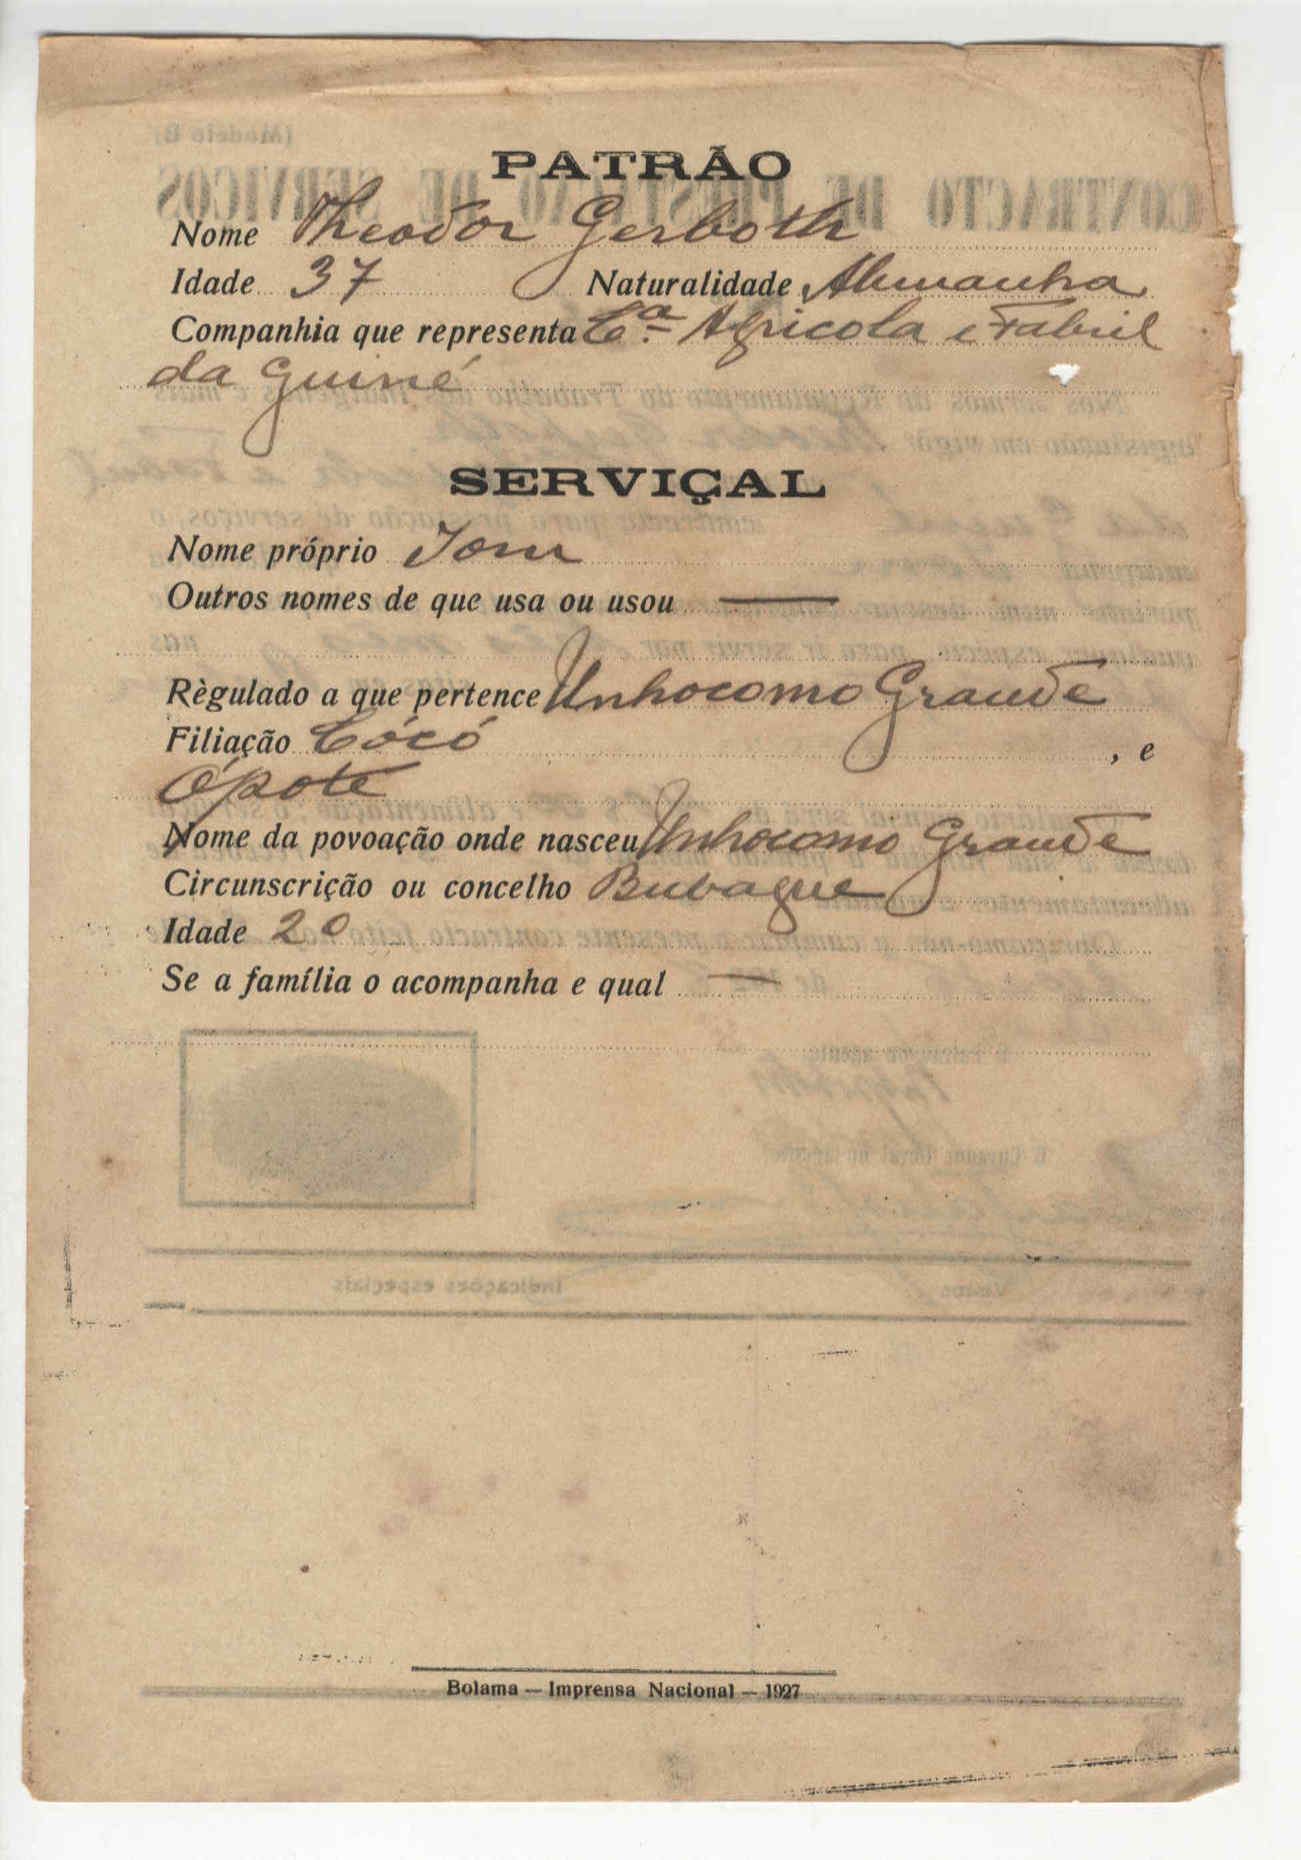 PATRÃO
Nome Theodor Gerboth
Idade 37 Naturalidade Alemanha
Companhia que representa Cª Agricola e Fabril
da Guiné
SERVIÇAL
Nome próprio
Outros nomes de que usa ou usou —
Règulado a que pertence Unhocomo Grande
Filiação Cócó , e
Ópote
Nome da povoação onde nasceu Unhocomo Grande
Circunscrição ou concelho Bubaque
Idade 20
Se a família o acompanha e qual —
Bolama — Imprensa Nacional — 1927